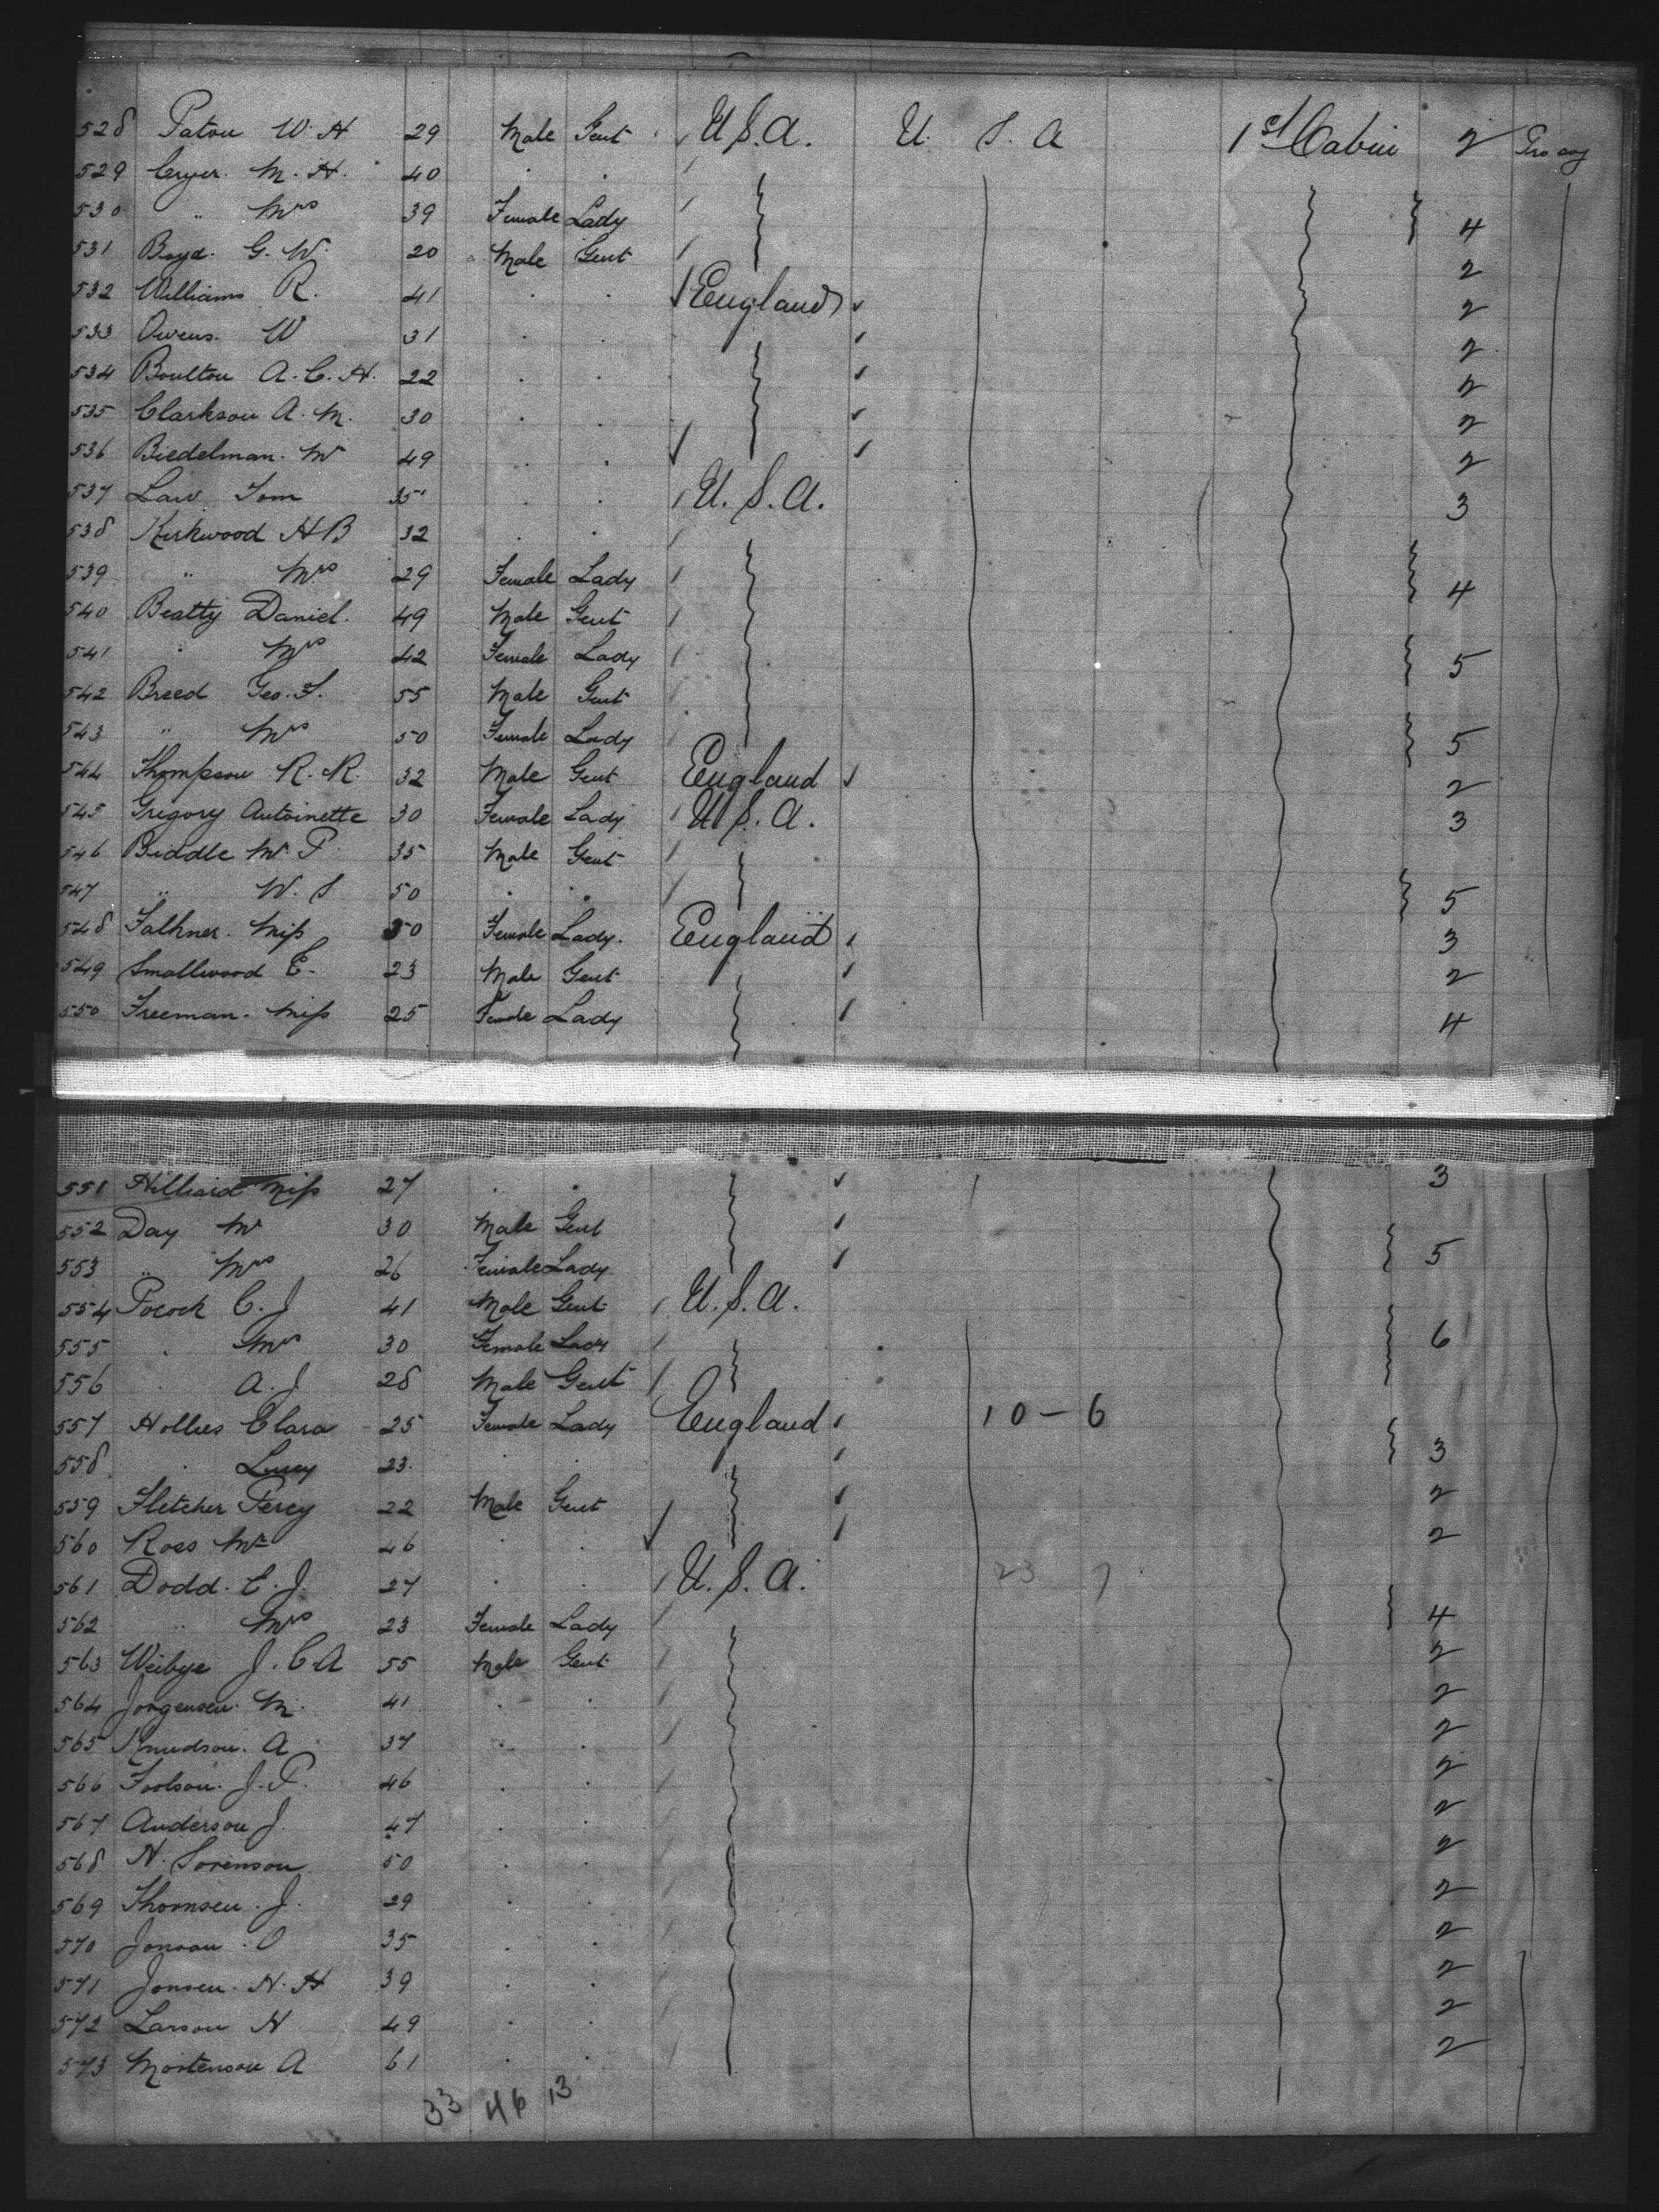 528 Paton W. H 29 Male Gent U.S.A. U. S. A 1st Cabin 2
529 Cryer. M. H. 40 . .
530 " Mrs 39 Female Lady 4
531 Boyd. G. W. 20 Male Gent 2
532 Williams R. 41 . . England 2
533 Owens. W 31 . . 2
534 Boulton A. C. H. 22 . . 2
535 Clarkson A. M. 30 . . 2
536 Biedelman. Mr 49 . . 2
537 Law Tom 35 . . U.S.A. 3
538 Kirkwood H B 32 . .
539 " Mrs 29 Female Lady 4
540 Beatty Daniel. 49 Male Gent
541 " Mrs 42 Female Lady 5
542 Breed Geo. F. 55 Male Gent
543 " Mrs 50 Female Lady 5
544 Thompson R. R. 32 Male Gent England 2
545 Gregory Antoinette 30 Female Lady U.S.A. 3
546 Biddle W. P. 35 Male Gent
547 " W. S 50 . . 5
548 Falkner. Miss 30 Female Lady. England 3
549 Smallwood E. 23 Male Gent 2
550 Freeman. Miss 25 Female Lady 4
551 Hilliard Miss 27 . . 3
552 Day Mr 30 Male Gent
553 " Mrs 26 Female Lady 5
554 Pocock C. J 41 Male Gent U.S.A.
555 . Mrs 30 Female Lady 6
556 . A. J 28 Male Gent
557 Hollies Clara 25 Female Lady England 10-6
558 . Lucy 23. . . 3
559 Fletcher Percy 22 Male Gent 2
560 Ross Mr 46 . . 2
561 Dodd. E. J. 27 . . U.S.A. 23 7
562 " Mrs 23 Female Lady 4
563 Weibye J. C. A 55 Male Gent 2
564 Jorgensen. M. 41 . . 2
565 Knudson. A 37 . . 2
566 J. P. 46 . . 2
567 Anderson J. 47 . . 2
568 N. Sorenson 50 . . 2
569 Thomsen. J. 29 . . 2
570 Jonson. O 35 . . 2
571 Jonsen. N. H 39 . . 2
572 Larson H 49 . . 2
573 Mortenson A 61 . . 2
33 46 13